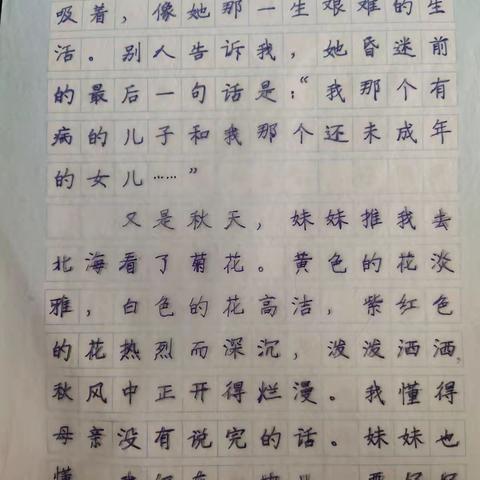 吸着，像她那一生艰难的生
活。别人告诉我，她昏迷前
的最后一句话是：“我那个有
病的儿子和我那个还未成年
的女儿……”
又是秋天，妹妹推我去
北海看了菊花。黄色的花淡
雅，白色的花高洁，紫红色
的花热烈而深沉，泼泼洒洒，
秋风中正开得烂漫。我懂得
母亲没有说完的话。妹妹也
懂